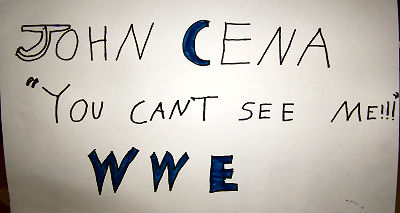 JOHN CENA
"YOU CANT SEE ME!!!"
WWE